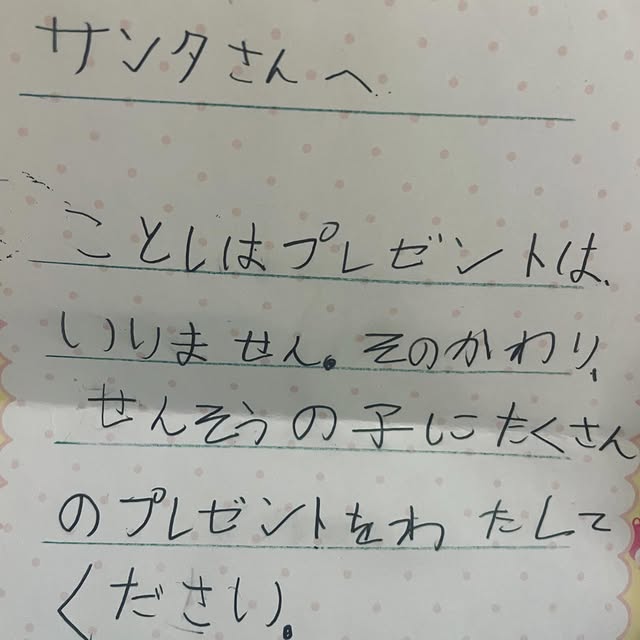 サンタさんへ
ことしはプレゼントは、
いりません。そのかわり、
せんそうの子にたくさん
のプレゼントをわたして
ください。